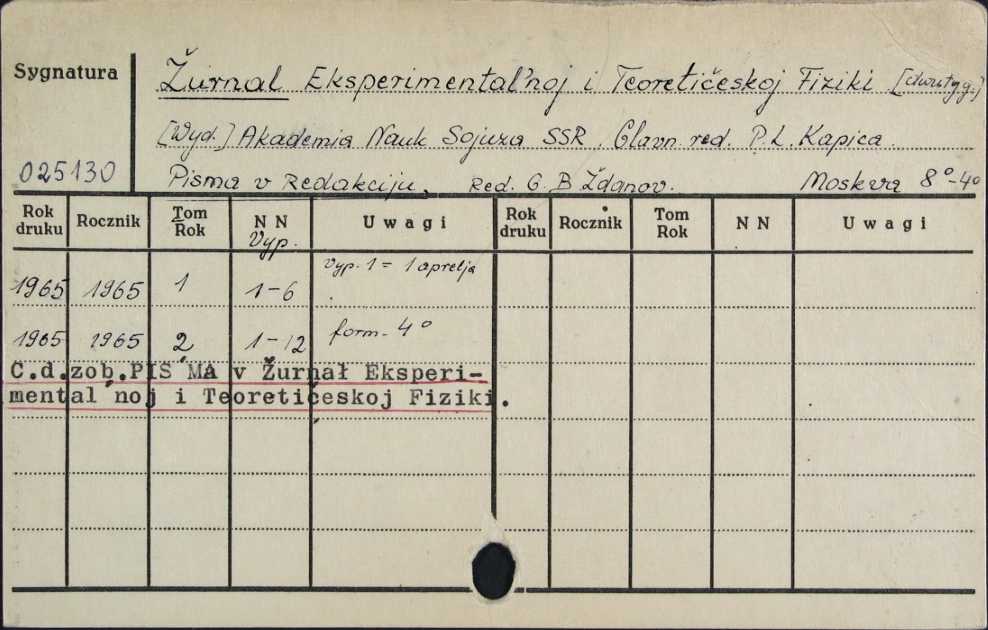 Sygnatura
Žurnal Eksperimental'noj i Teoretičeskoj Fiziki [dwutyg.]
[Wyd.] Akademia Nauk Sojuza SSR. Glavn. red. P. L. Kapica.
025130
Pisma v Redakciju, Red. G. B Ždanov. Moskva 8°-4°
Rok druku Rocznik Tom Rok N N Uwagi Rok druku Rocznik Tom Rok N N Uwagi
Vyp.
Vyp. 1 = 1 aprelja
1965 1965 1 1-6
1965 1965 2 1-12 form. 4°
C.d.zob.PIS'MA v Žurnał Eksperi-
mental'noj i Teoretičeskoj Fiziki.